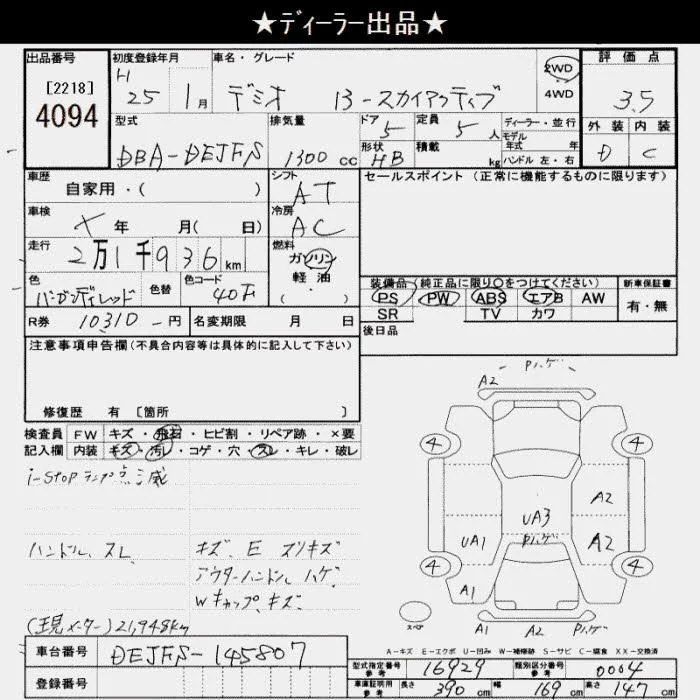 ★ディーラー出品★
出品番号 初度登録年月 車名・グレード 評価点
[2218] 4094
H 25 1月 デミオ 13-スカイアクティブ 2WD 4WD 3.5
型式 排気量 ドア 定員 ディーラー・並行 外装 内装
DBA-DEJFS 1300cc 5 5人 モデル年式 年 D C
形状 HB 積載 kg ハンドル 左・右
車歴 シフト セールスポイント(正常に機能するものに限ります)
自家用・( ) AT
車検 冷房
× 年 月( 日) AC
走行 燃料
2万1千936km ガソリン 軽油 ( ・ )
色 色替 色コード 装備品 純正品に限り○をつけてください 新車保証書
バーガンディレッド 40F PS PW ABS エアB AW 有・無
SR TV カワ
R券 10310-円 名変期限 月 日 後日品
注意事項申告欄(不具合内容等は具体的に記入して下さい)
修復歴 有 [箇所 ]
検査員 FW キズ・飛石・ヒビ割・リペア跡・×要
記入欄 内装 キズ・汚レ・コゲ・穴・スレ・キレ・破レ
i-stop ランプ点滅
ハンドル、スレ キズ、E スリキズ
アウターハンドル ハゲ
Wキャップ、キズ
(現メーター) 21,948km
Pハゲ
A2
4 4
A2
UA3
UA1 Pハゲ A2
4 4
A1
スペア A1 A2 Pハゲ
A-キズ E-エクボ U-凹み W-補修跡 S-サビ C-腐食 XX-交換済
車台番号 DEJFS-145807
型式指定番号 参考 16929 類別区分番号 参考 0004
登録番号
車庫証明用 参考 長さ 390cm 幅 169cm 高さ 147cm